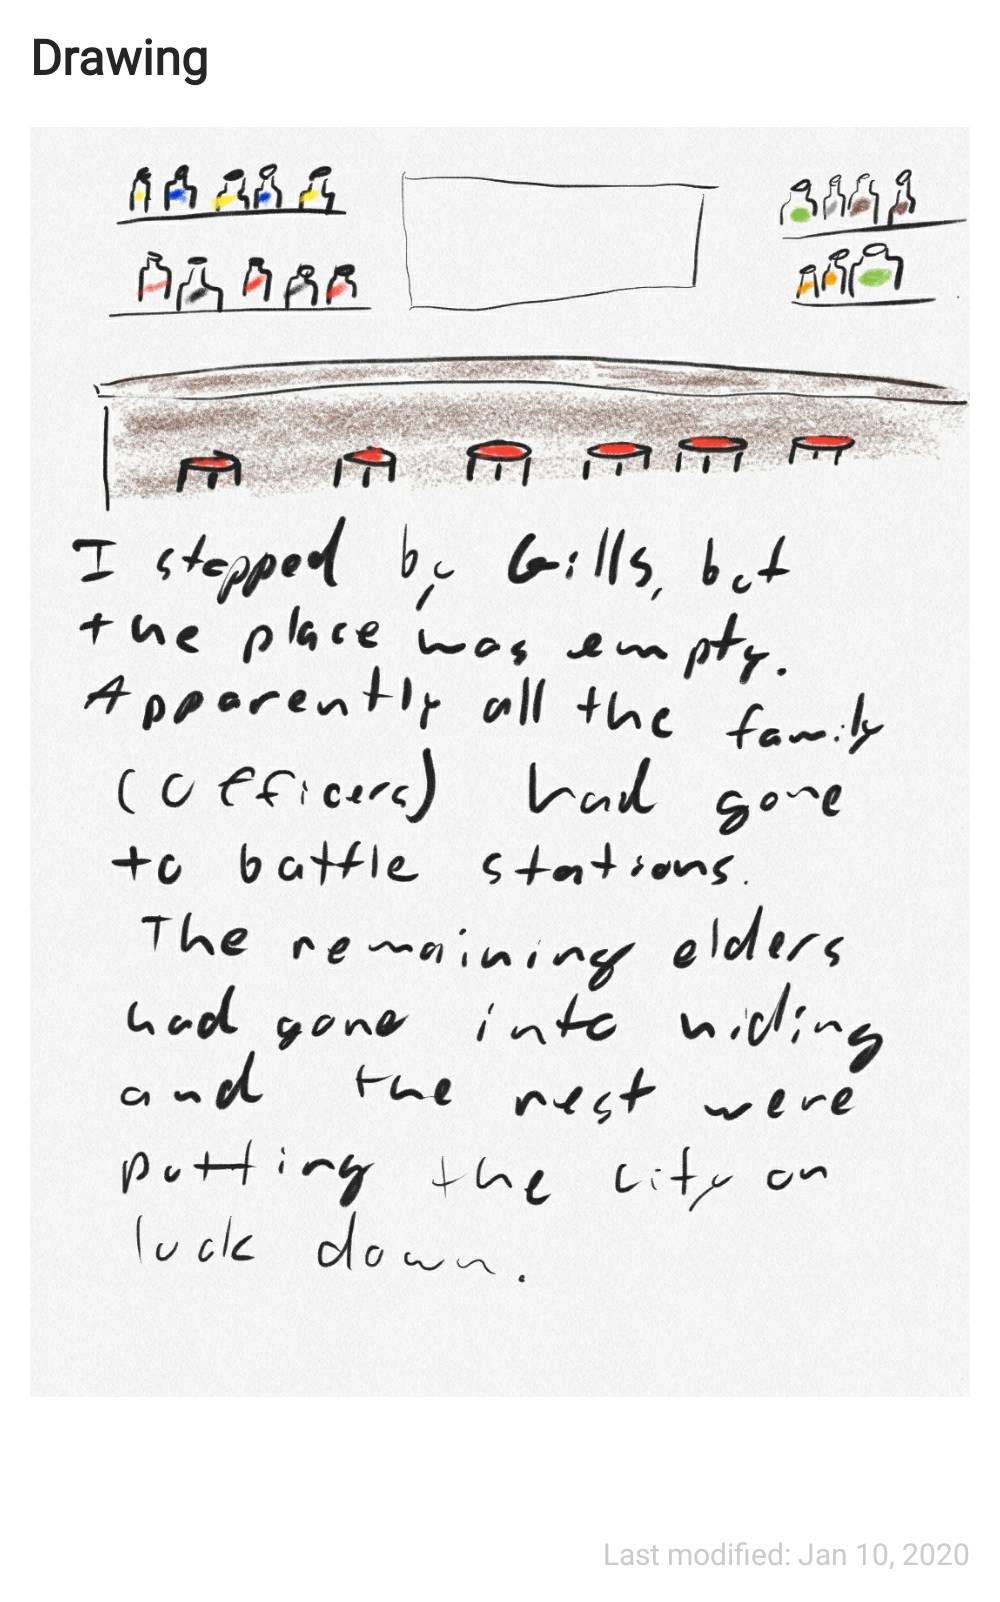 Drawing
I stopped by Gills, but
the place was empty.
Apparently all the family
(officers) had gone
to battle stations.
The remaining elders
had gone into hiding
and the rest were
putting the city on
lock down.
Last modified: Jan 10, 2020